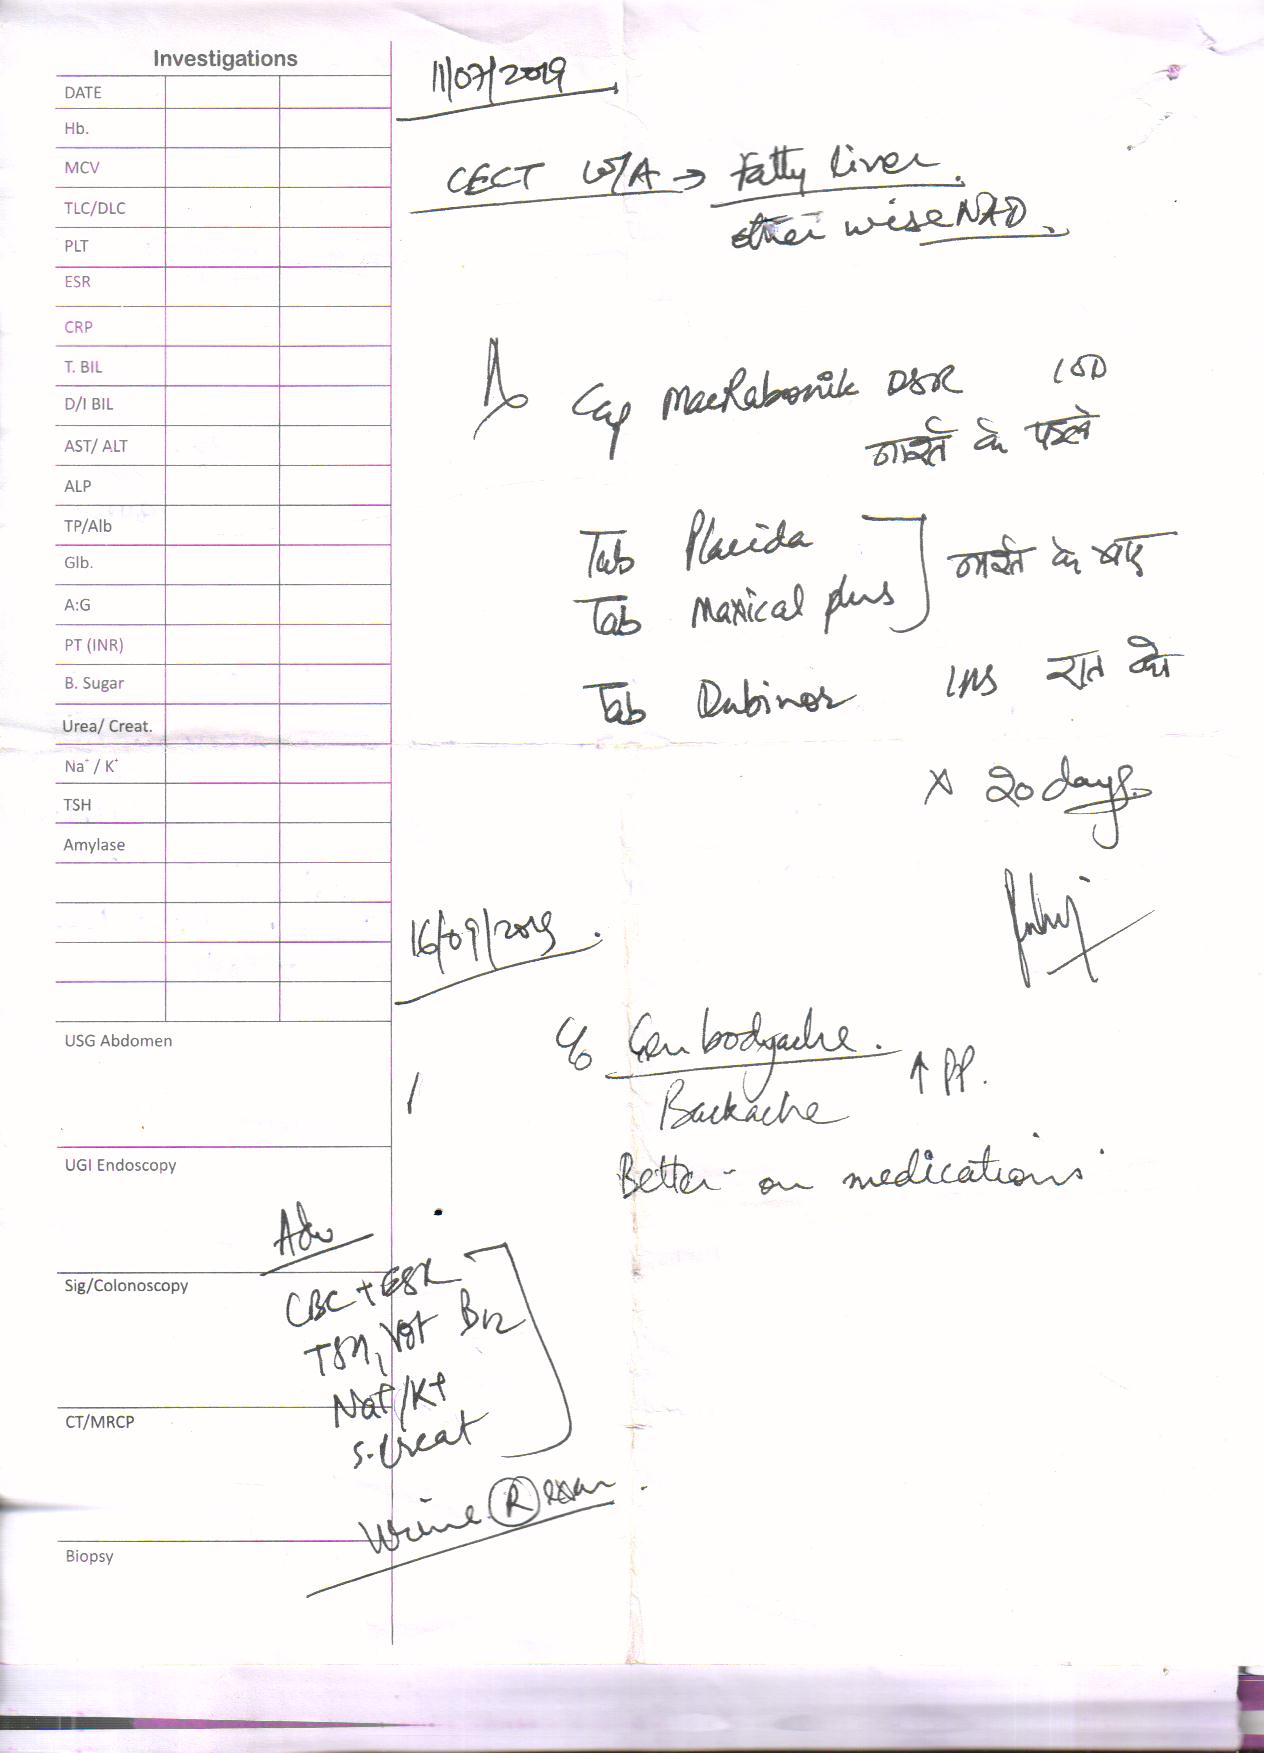 Investigations
DATE
Hb.
MCV
TLC/DLC
PLT
ESR
CRP
T. BIL
D/I BIL
AST/ ALT
ALP
TP/Alb
Glb.
A:G
PT (INR)
B. Sugar
Urea/ Creat.
Na⁺ / K⁺
TSH
Amylase
USG Abdomen
UGI Endoscopy
Sig/Colonoscopy
CT/MRCP
Biopsy
11/07/2019
CECT W/A → Fatty Liver.
other wise NAD.
Cap MacRabonik DSR 1OD
नाश्ते के पहले
Tab Placida
Tab Maxical plus
नाश्ते के बाद
Tab Dubinor 1HS रात को
x 20 days.
16/09/2019.
c/o Gen bodyache.
Backache
↑ PP.
Better on medications
Adv
CBC + ESR
TSH, Vit B12
Na+/K+
S. Creat
Urine Ⓡ exam.